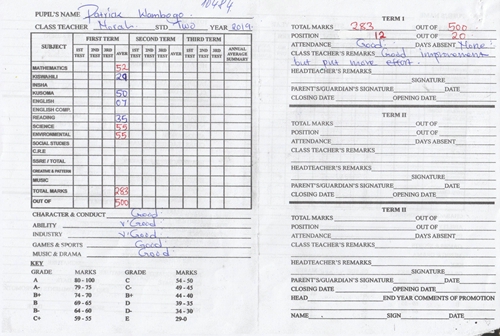 10484
PUPIL'S NAME Patrick Wambogo
CLASS TEACHER Morah STD Two YEAR 2019
SUBJECT FIRST TERM SECOND TERM THIRD TERM
1ST TEST 2ND TEST 3RD TEST AVER 1ST TEST 2ND TEST 3RD TEST AVER 1ST TEST 2ND TEST 3RD TEST ANNUAL AVERAGE SUMMARY
MATHEMATICS 52
KISWAHILI 29
INSHA
KUSOMA 50
ENGLISH 07
ENGLISH COMP.
READING 35
SCIENCE 55
ENVIRONMENTAL 55
SOCIAL STUDIES
C.R.E
SSRE / TOTAL
CREATIVE & PATTERN
MUSIC
TOTAL MARKS 283
OUT OF 500
CHARACTER & CONDUCT Good
ABILITY V.Good
INDUSTRY V.Good
GAMES & SPORTS Good
MUSIC & DRAMA Good
KEY
GRADE MARKS GRADE MARKS
A 80 - 100 C 54 - 50
A- 79 - 75 C- 49 - 45
B+ 74 - 70 B+ 44 - 40
B 69 - 65 D 39 - 35
B- 64 - 60 D- 34 - 30
C+ 59 - 55 E 29-0
TERM I
TOTAL MARKS 283 OUT OF 500
POSITION 12 OUT OF 20
ATTENDANCE Good DAYS ABSENT None!
CLASS TEACHER'S REMARKS Good improvement
but put more effort.
HEADTEACHER'S REMARKS
SIGNATURE
PARENT'S/GUARDIAN'S SIGNATURE
CLOSING DATE OPENING DATE
TERM II
TOTAL MARKS OUT OF
POSITION OUT OF
ATTENDANCE DAYS ABSENT
CLASS TEACHER'S REMARKS
HEADTEACHER'S REMARKS
SIGNATURE
PARENT'S/GUARDIAN'S SIGNATURE
CLOSING DATE OPENING DATE
TERM II
TOTAL MARKS OUT OF
POSITION OUT OF
ATTENDANCE DAYS ABSENT
CLASS TEACHER'S REMARKS
HEADTEACHER'S REMARKS
SIGNATURE
PARENT'S/GUARDIAN'S SIGNATURE
CLOSING DATE OPENING DATE
HEAD END YEAR COMMENTS OF PROMOTION
NAME SIGN DATE